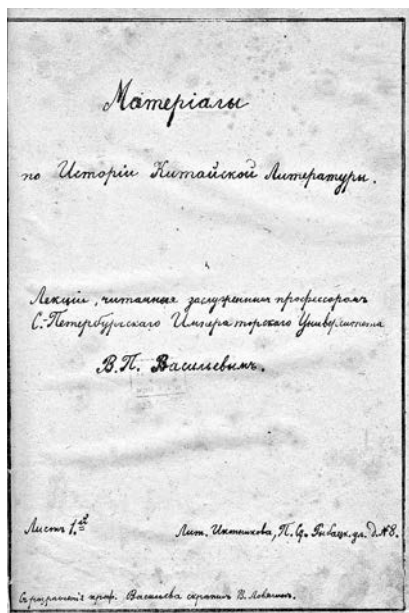 Матеріалы
по Исторіи Китайской Литературы.
Лекціи, читанныя заслуженнымъ профессоромъ
С.-Петербургскаго Императорскаго Университета
В. П. Васильевымъ.
Листъ 1.й
Лит. Иконникова, П. С., ул. Д. №8.
Съ разрѣшенія проф. Васильева скрѣпилъ В.